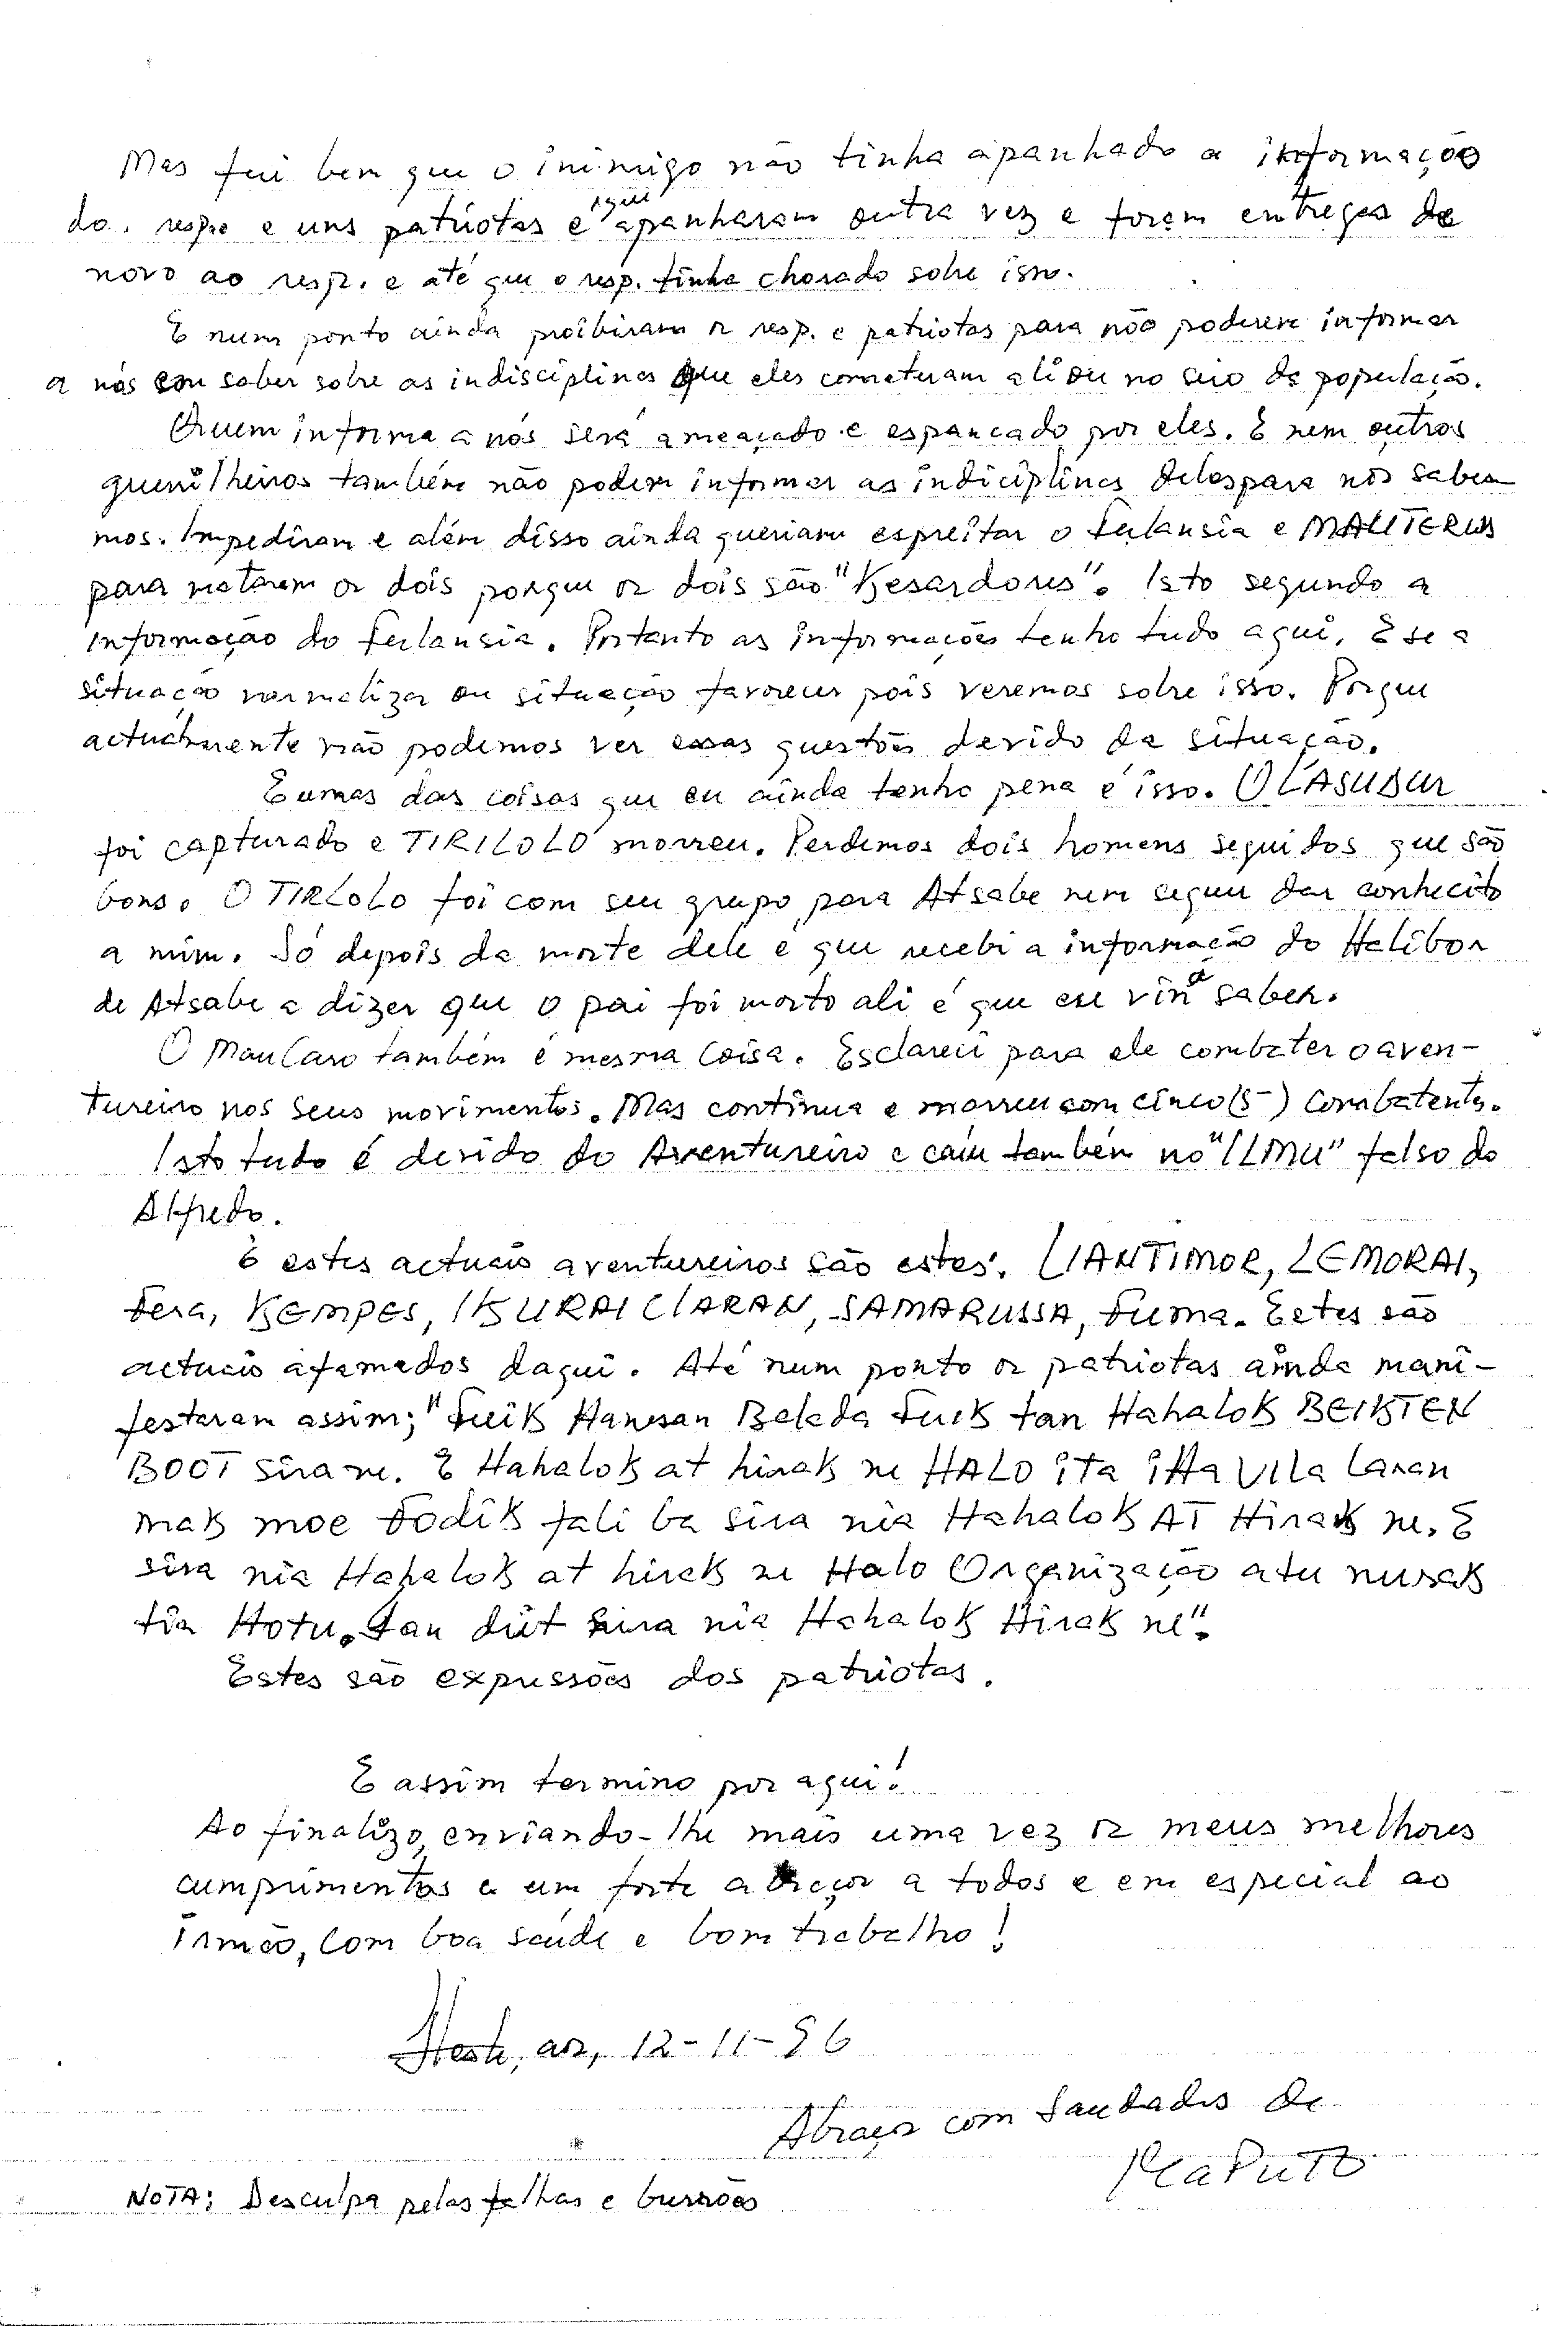 Mas fui bem que o inimigo não tinha apanhado a informação
do. respo e uns patriotas é que apanharam outra vez e forem entregas de
novo ao resp. e até que o resp. tinha chorado sobre isso.
E num ponto ainda proibiram os resp. e patriotas para não poderem informar
a nós ou saber sobre as indisciplinas que eles cometeram ali ou no seio da população.
Quem informa a nós será ameaçado e espancado por eles. E nem outros
guerrilheiros também não podem informar as indiciplinas delas para nós sabere
mos. Impediram e além disso ainda queriam espreitar o Fulansia e MAUTERUS
para matarem os dois porque os dois são "Kesardores". Isto segundo a
informação do Fulansia. Portanto as informações tenho tudo aqui. E se a
situação normalizar ou situação favorecer pois veremos sobre isso. Porque
actualmente não podemos ver essas questões devido da situação.
E umas das coisas que eu ainda tenho pena é isso. O LASUDUR
foi capturado e TIRILOLO morreu. Perdemos dois homens seguidos que são
bons. O TIRLOLO foi com seu grupo para Atsabe nem sequer dar conhecito
a mim. Só depois da morte dele é que recebi a informação do Halibor
de Atsabe a dizer que o pai foi morto ali é que eu vin a saber.
O MauCaro também é mesma coisa. Esclareci para ele combater o aven-
tureiro nos seus movimentos. Mas continua e morreu com cinco (5-) Combatentes.
Isto tudo é devido do Aventureiro e caiu também no "ILMU" falso do
Alfredo.
E estes actuais aventureiros são estes: LIANTIMOR, LEMORAI,
Fera, KEMPES, IKURAI CLARAN, SAMARUSSA, Fuma. Estes são
actuais afamados daqui. Até num ponto os patriotas ainda mani-
festaram assim; "Fuik Hanesan Belada Fuik tan Hahalok BEIKTEN
BOOT sira ne. E Hahalok at hirak ne HALO ita iHa Vila laran
mak moe Fodik fali ba sira nia Hahalok AT Hirak ne. E
sira nia Hahalok at hirak ne Halo Organização atu nurak
tia Hotu. tan diit sira nia Hahalok Hirak ne".
Estes são expressões dos patriotas.
E assim termino por aqui!
Ao finalizo, enviando-lhe mais uma vez os meus melhores
cumprimentos e um forte abraços a todos e em especial ao
irmão, com boa saúde e bom trabalho!
aos, 12-11-96
Abraços com Saudades de
NOTA: Desculpa pelas falhas e burrões